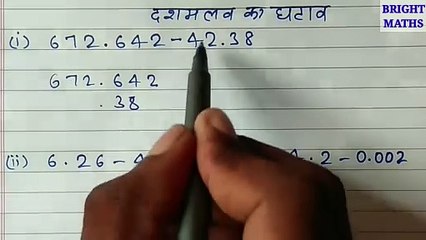 BRIGHT
MATHS
दशमलव का घटाव
(i) 672.642 - 42.38
672.642
.38
(ii) 6.26 - 4 .2 - 0.002